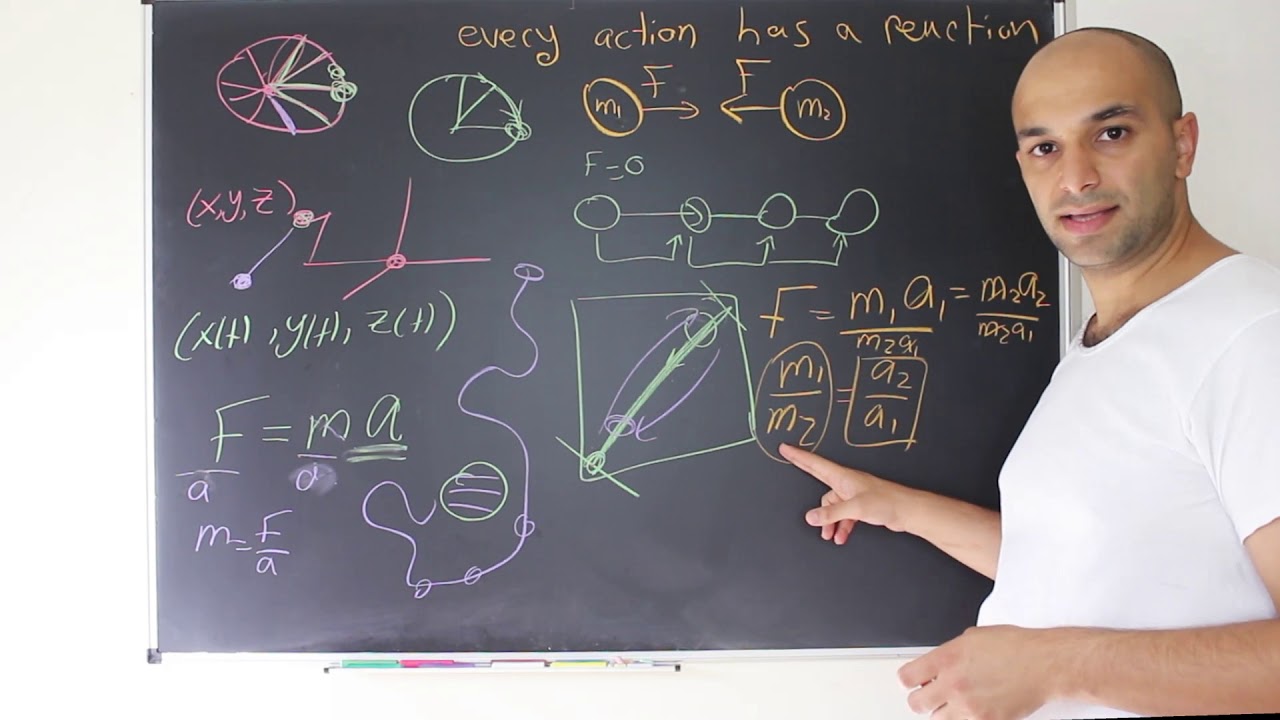 every action has a reaction
m₁ F F m₂
F=0
(x,y,z)
(x(t), y(t), z(t))
F = m₁a₁ = m₂a₂
m₂a₁ m₂a₁
m₁/m₂ = a₂/a₁
F = m a
a a
m = F/a